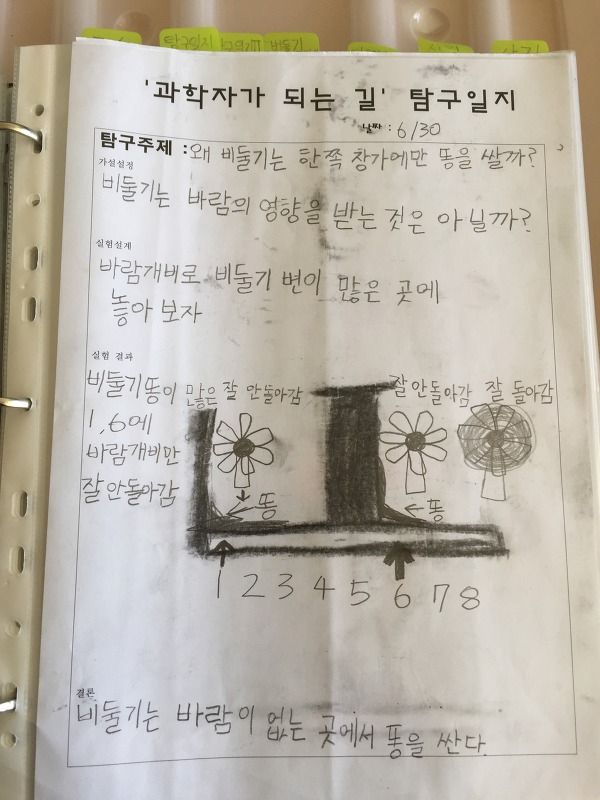 탐구일지
비둘기
'과학자가 되는 길' 탐구일지
날짜 : 6/30
탐구주제 : 왜 비둘기는 한쪽 창가에만 똥을 쌀까?
가설설정
비둘기는 바람의 영향을 받는 것은 아닐까?
실험설계
바람개비로 비둘기 변이 많은 곳에
놓아 보자
실험 결과
비둘기똥이 많은
1,6에
바람개비만
잘 안돌아감
잘 안돌아감
잘 안돌아감
잘 돌아감
똥
똥
1 2 3 4 5 6 7 8
결론
비둘기는 바람이 없는 곳에서 똥을 싼다.